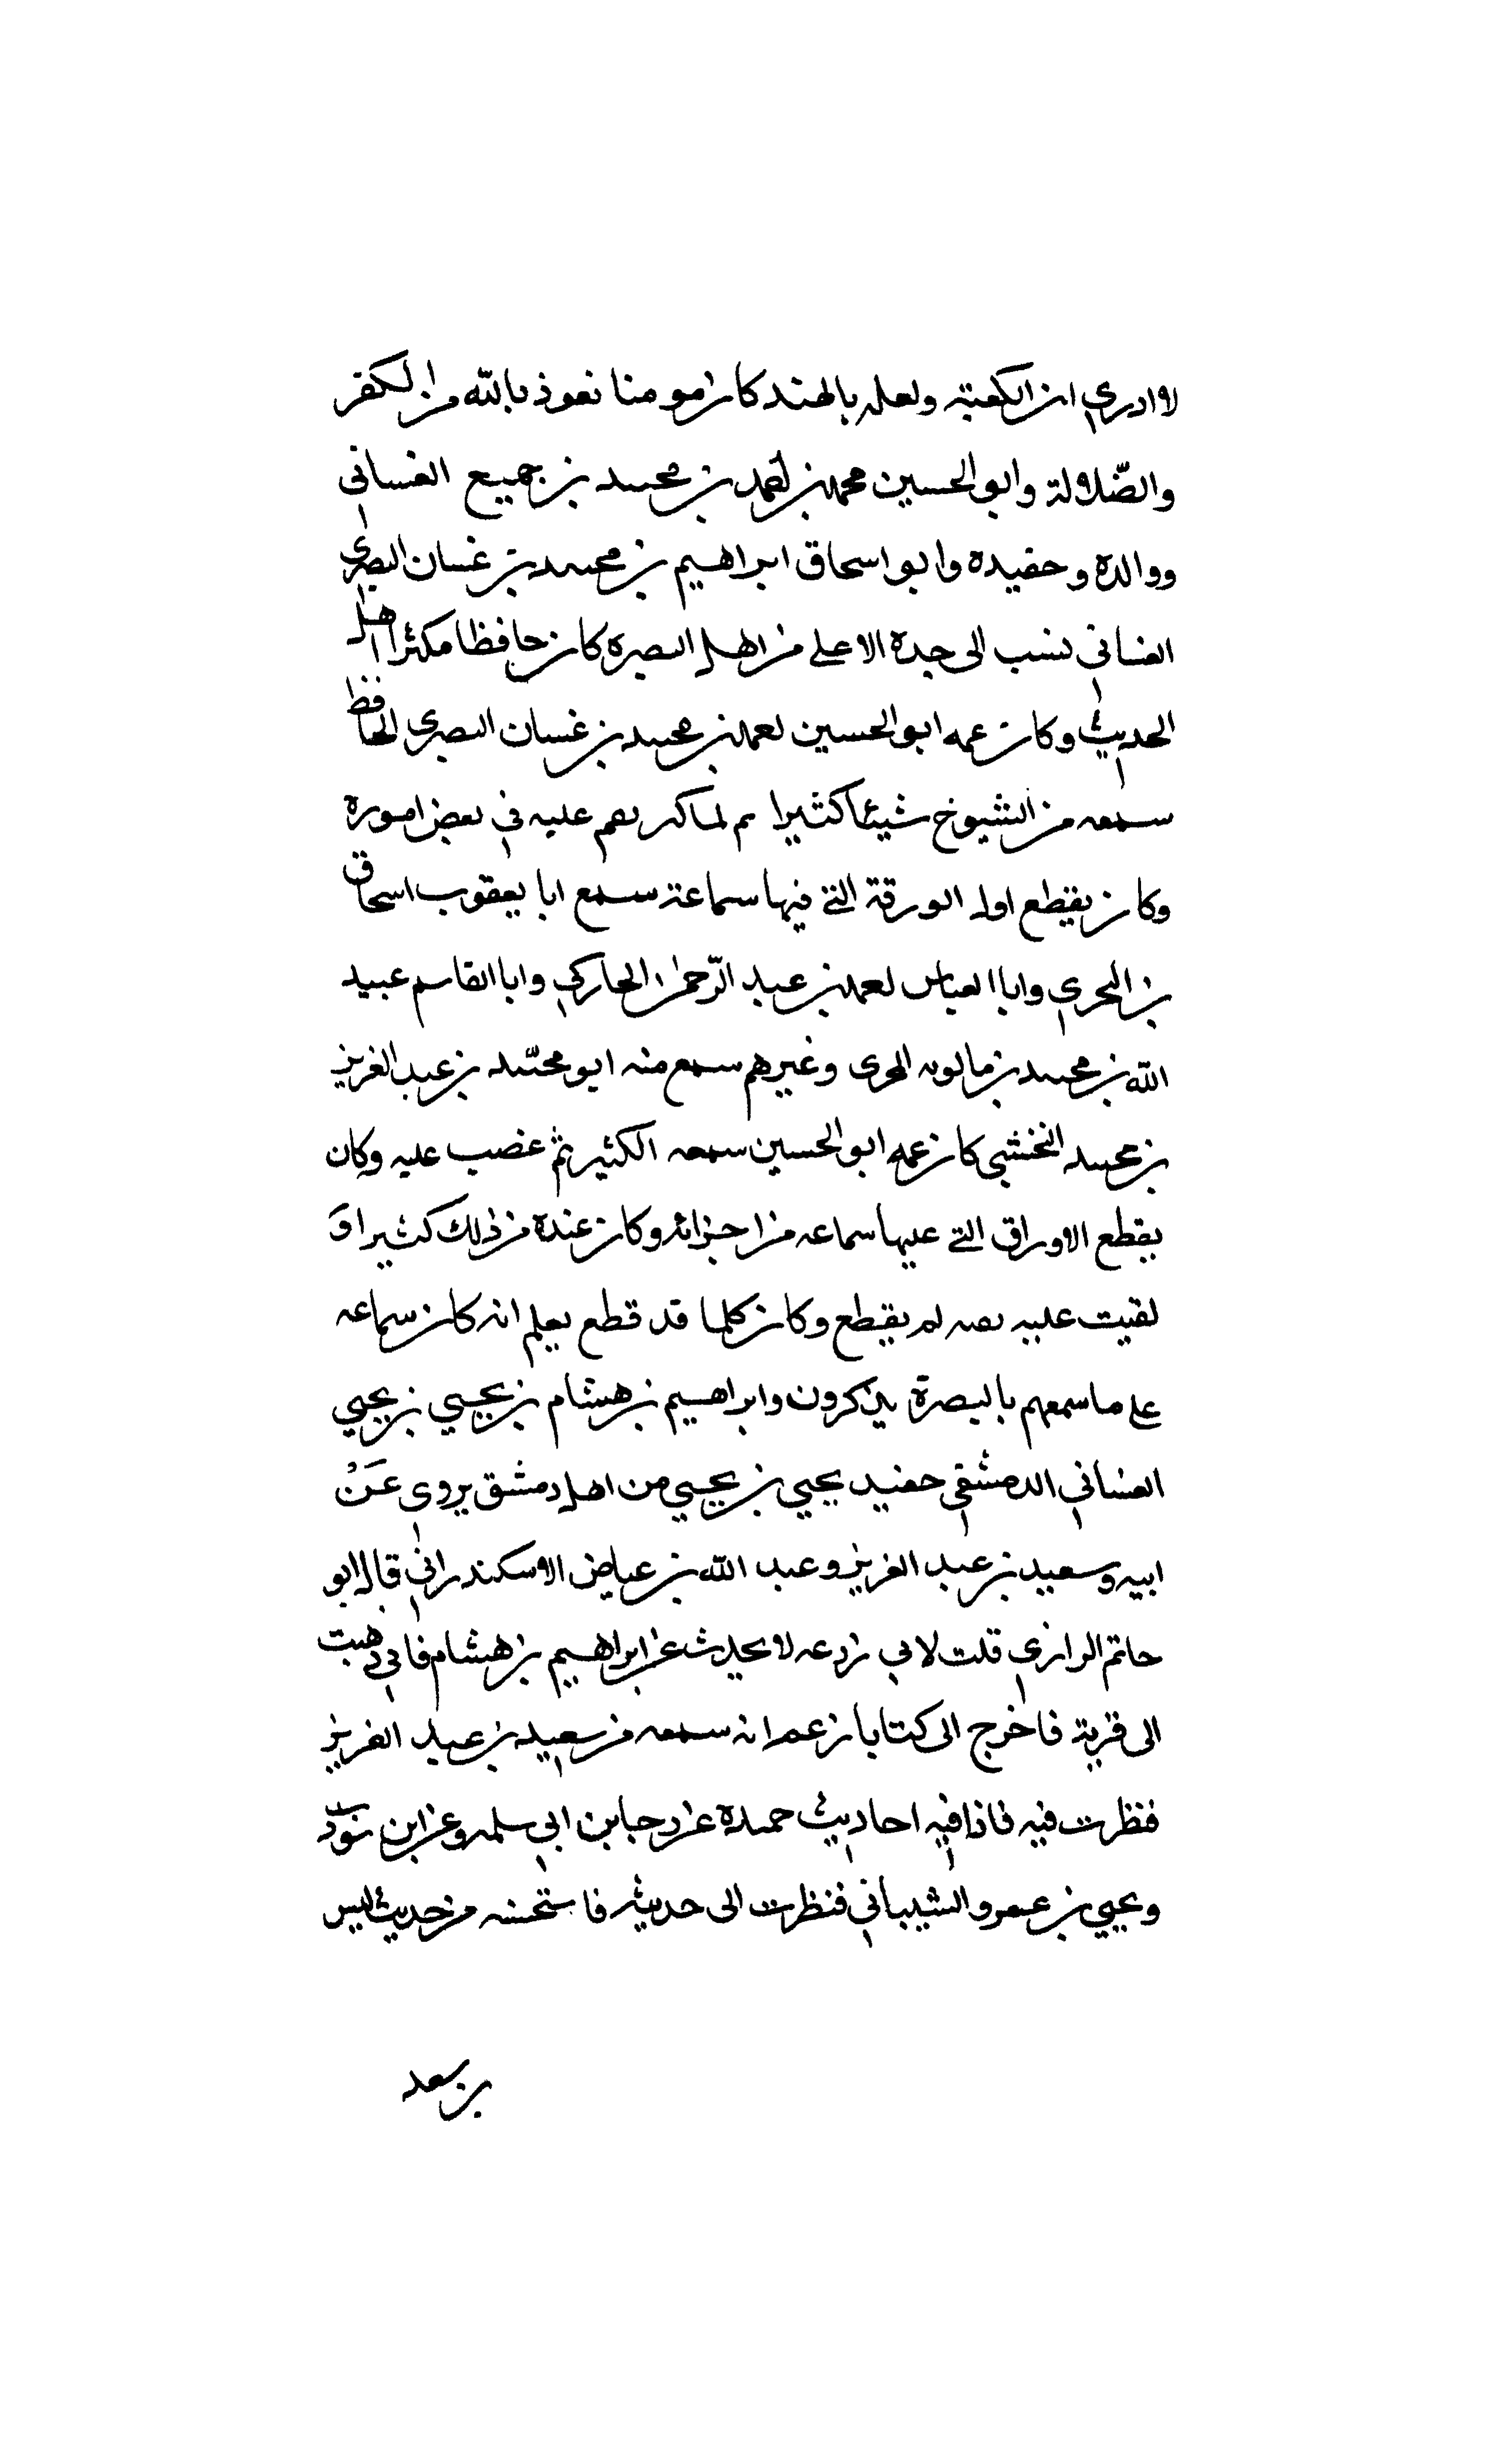 لا ادري اين الكعبة ولعله بالهند كان مومنا نعوذ بالله من الكفر
والضّلالة وابو الحسين محمد بن احمد بن محمد بن جميع الغساني
ووالده وحفيده وابو اسحاق ابراهيم بن محمد بن غسان البصرى
الغساني نسب الى جده الاعلى من اهل البصرة كان حافظا مكثرا اهل
الحديث وكان عمه ابو الحسين احمد بن محمد بن غسان البصرى الحافظ
سمعه من الشيوخ شيئا كثيرا ثم لما كبر نقم عليه في بعض اموره
وكان يقطع اول الورقة التي فيها سماعة سمع ابا يعقوب اسحاق
بن البحرى وابا العباس احمد بن عبد الرّحمن الحاركي وابا القاسم عبيد
الله بن محمد بن وغيرهم سمع منه ابو محمّد بن عبد العزيز
بن محمد النخشبي كان عمه ابو الحسين سمعه الكثير ثم غضب عليه وكان
يقطع الاوراق التي عليها سماعه من اجزائه وكان عنده من ذلك كثيرا وَ
لقيت عليه لم يقطع وكان كلما قد قطع يعلم انه كان سماعه
على ما سمعهم بالبصرة يذكرون وابراهيم بن هشام بن يحيي بن يحيي
الغساني الدمشقي حفيد يحيي بن يحيي من اهل دمشق يروى عَنْ
ابيه وسعيد بن عبد العزيز وعبد الله بن عياض الاسكندراني قال ابو
حاتم الرازي قلت لابي زرعه لا يحدث عن ابراهيم بن هشام فاني ذهبت
الى قرية فاخرج الى كتابا زعم انه سمعه من سعيد بن عبد العزيز
فنظرت فيه فاذا فيه احاديث ضمرة عن رجا بن ابي سلمه وعن ابن شوذب
ويحيي بن عمرو الشيباني فنظرت الى حديثه فاستحسنه من حديث ليس
بن سعد